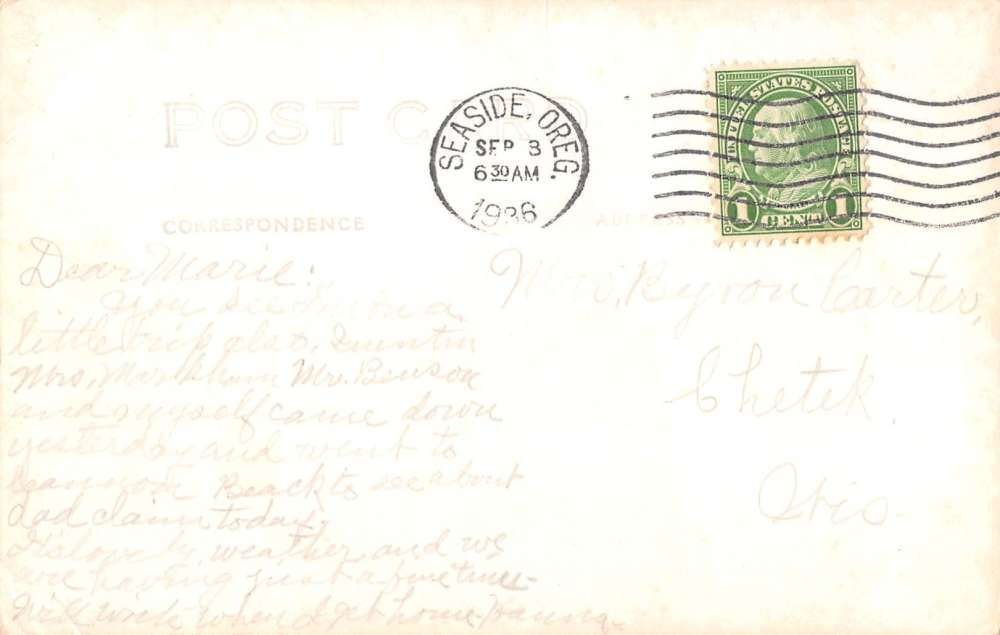 POST CARD
SEASIDE, OREG.
SEP 3
6 30 AM
1936
UNITED STATES POSTAGE
1 CENT 1
CORRESPONDENCE
ADDRESS
Dear Marie:
You see I'm on a
little trip also. Quentin
Mrs. Markham Mr. Benson
and myself came down
yesterday and went to
Beach to see about
dad claim today.
It's lovely weather and we
are having just a fine time.
Will write when I get home.
Mrs. Byron Carter,
Chetek
Wis.